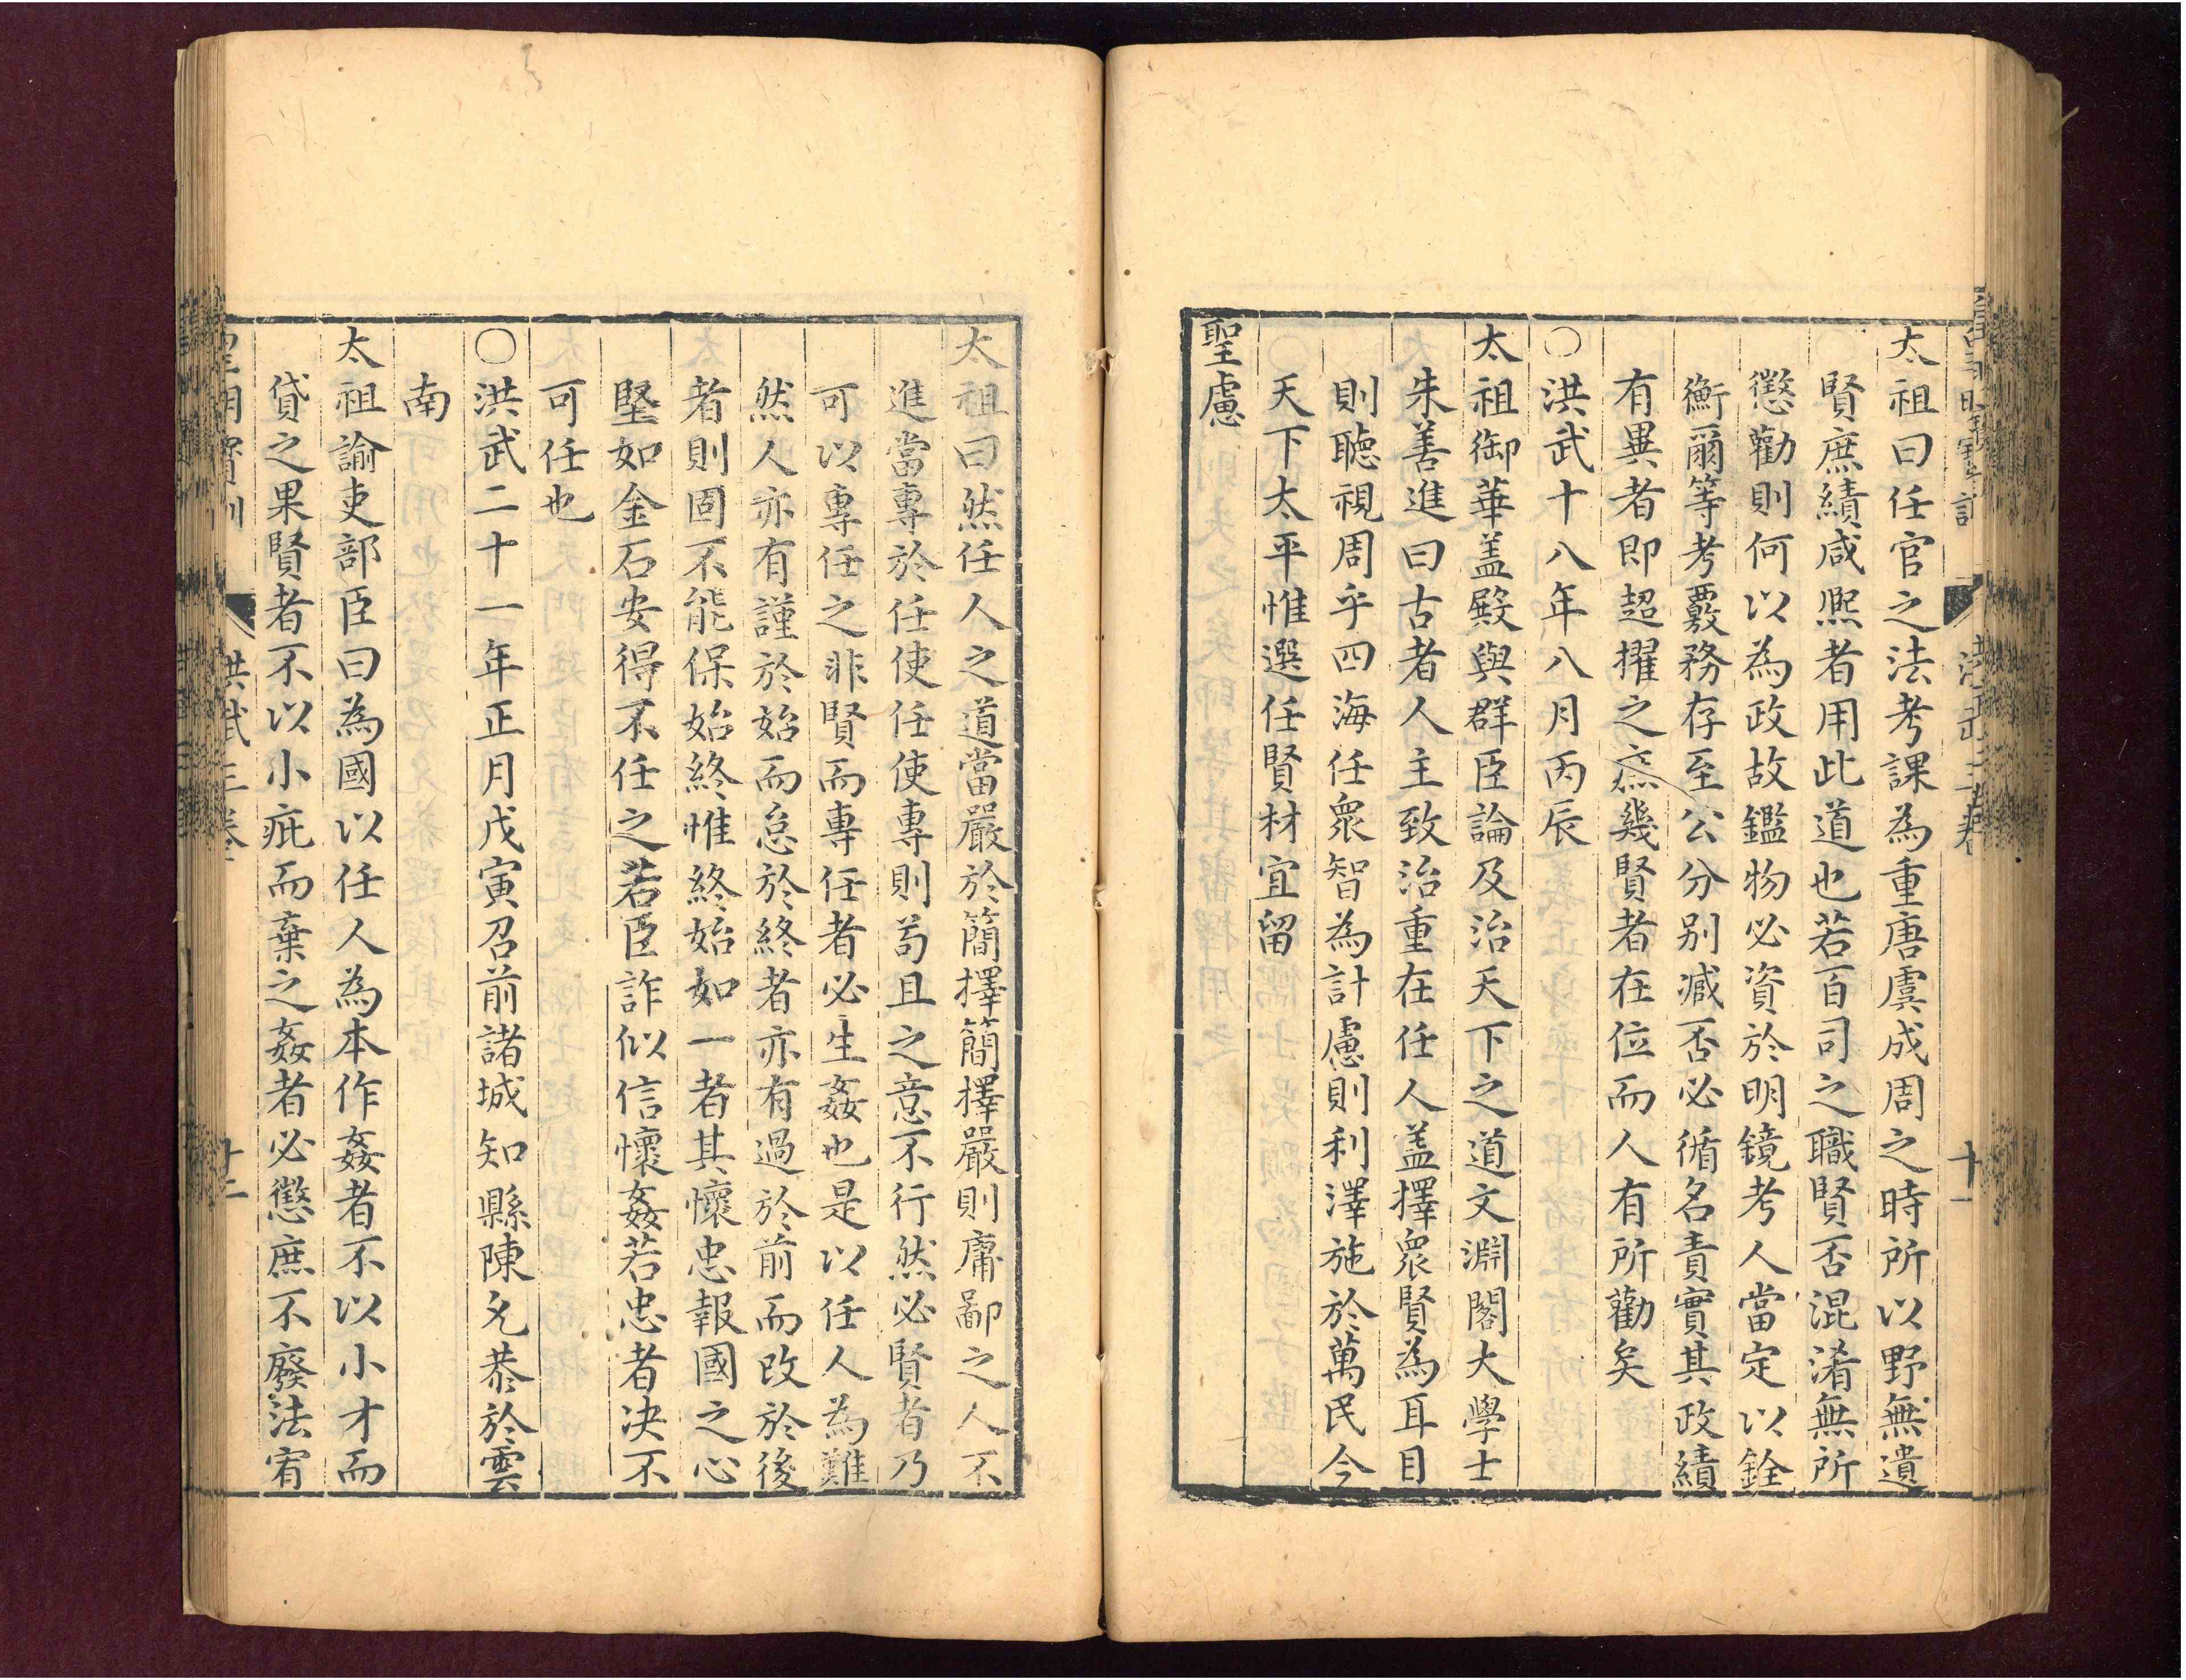 太祖曰任官之法考課為重唐虞成周之時所以野無遺
賢庶績咸熈者用此道也若百司之職賢否混淆無所
懲勸則何以為政故鑑物必資於明鏡考人當定以銓
衡爾等考覈務存至公分别臧否必循名責實其政績
有異者即超擢之庶幾賢者在位而人有所勸矣
○洪武十八年八月丙辰
太祖御華盖殿與群臣論及治天下之道文淵閣大學士
朱善進曰古者人主致治重在任人盖擇衆賢為耳目
則聽視周乎四海任衆智為計慮則利澤施於萬民今
天下太平惟選任賢材宜留
聖慮
十一
太祖曰然任人之道當嚴於簡擇簡擇嚴則庸鄙之人不
進當專於任使任使專則苟且之意不行然必賢者乃
可以專任之非賢而專任者必生姦也是以任人為難
然人亦有謹於始而怠於終者亦有過於前而改於後
者則固不能保始終惟終始如一者其懷忠報國之心
堅如金石安得不任之若臣詐似信懷姦若忠者决不
可任也
○洪武二十一年正月戊寅召前諸城知縣陳允恭於雲
南
太祖諭吏部臣曰為國以任人為本作姦者不以小才而
貸之果賢者不以小疵而棄之姦者必懲庶不廢法宥
洪武三卷 十二